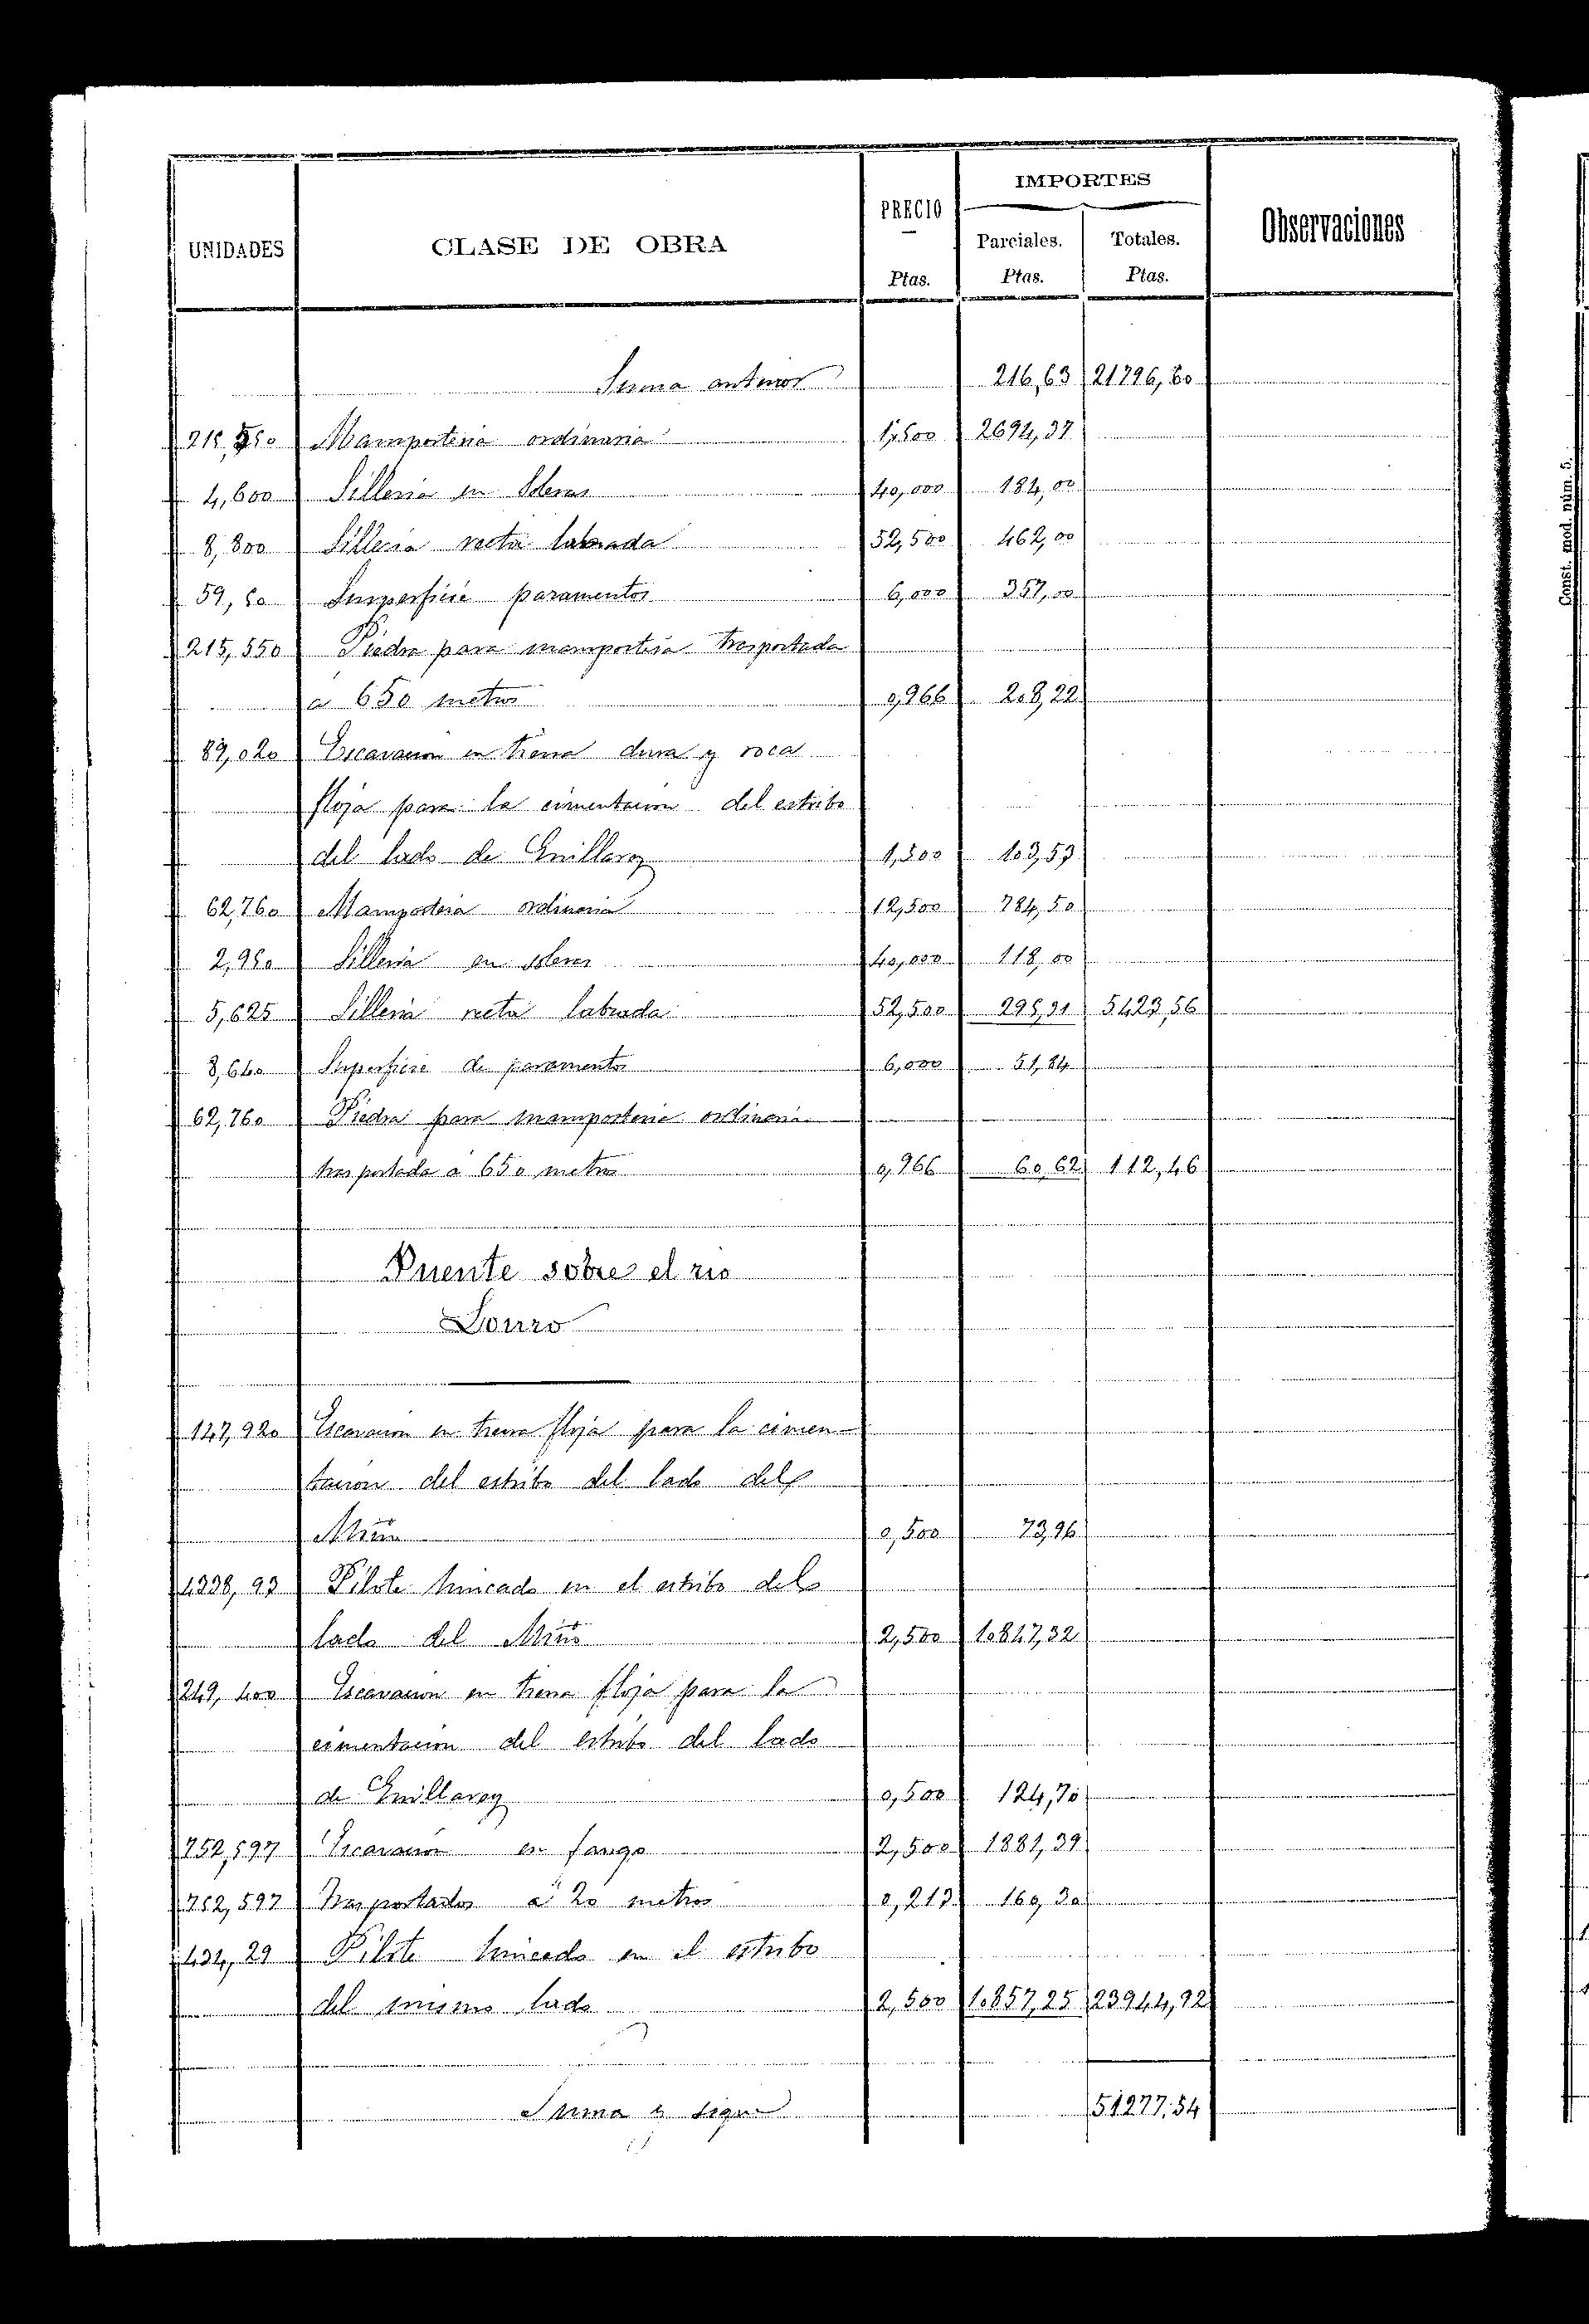 UNIDADES CLASE DE OBRA PRECIO Ptas. IMPORTES Parciales. Ptas. Totales. Ptas. Observaciones
Suma anterior 216,63 21796,60
215,550 Mamposteria ordinaria 12,500 2694,37
4,600 Silleria en soleras 40,000 184,00
8,800 Silleria recta labrada 52,500 462,00
59,50 Superficie paramentos 6,000 357,00
215,550 Piedra para mamposteria trasportada
a 650 metros 0,966 208,22
89,020 Escavacion en tierra dura y roca
floja para la cimentacion del estribo
del lado de Guillarey 1,500 103,53
62,760 Mamposteria ordinaria 12,500 784,50
2,950 Silleria en soleras 40,000 118,00
5,625 Silleria recta labrada 52,500 295,31 5423,56
8,640 Superficie de paramentos 6,000 51,84
62,760 Piedra para mamposteria ordinaria
trasportada a 650 metros 0,966 60,62 112,46
Puente sobre el rio
Louro
147,920 Escavacion en tierra floja para la cimen-
tacion del estribo del lado del
Miño 0,500 73,96
4338,93 Pilote hincado en el estribo del
lado del Miño 2,500 10847,32
249,400 Escavacion en tierra floja para la
cimentacion del estribo del lado
de Guillarey 0,500 124,70
752,597 Escavacion en fango 2,500 1881,39
752,597 Trasportados a 20 metros 0,213 160,30
434,29 Pilote hincado en el estribo
del mismo lado 2,500 10857,25 23944,92
Suma y sigue 51277,54
Const. mod. núm. 5.